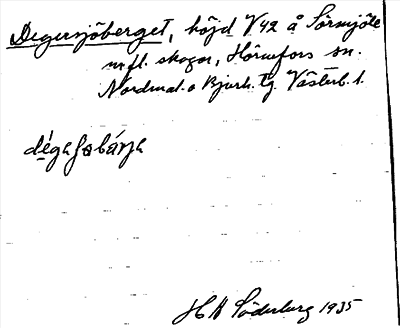 Degersjöberget, höjd V. 42 å Sörmjöle
m.fl. skogar, Hörnefors sn.
Nordmal. o Bjurh. tg. Västerb. l.
H M Söderberg 1935